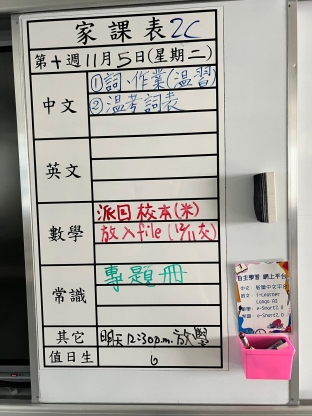 家課表 2C
第十週11月5日(星期二)
中文
①詞、作業(温習)
②温考詞表
英文
數學
派回校本(米)
放入file (12/11交)
常識
專題冊
其它
明天12:30p.m.放學
值日生
6
自主學習 網上平台